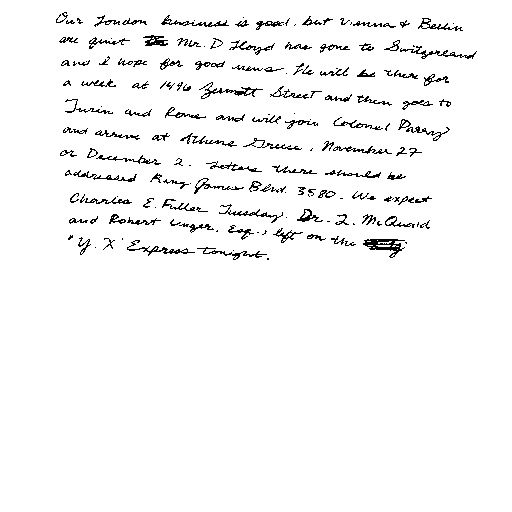 Our London business is good, but Vienna & Berlin
are quiet. Mr. D. Lloyd has gone to Switzerland
and I hope for good news. He will be there for
a week at 1496 Zermott Street and then goes to
Turin and Rome and will join Colonel Parry
and arrive at Athens Greece, November 27
or December 2. Letters there should be
addressed King James Blvd. 3580. We expect
Charles E. Fuller Tuesday. Dr. L. McQuaid
and Robert Unger, Esq., left on the
"Y. X" Express tonight.